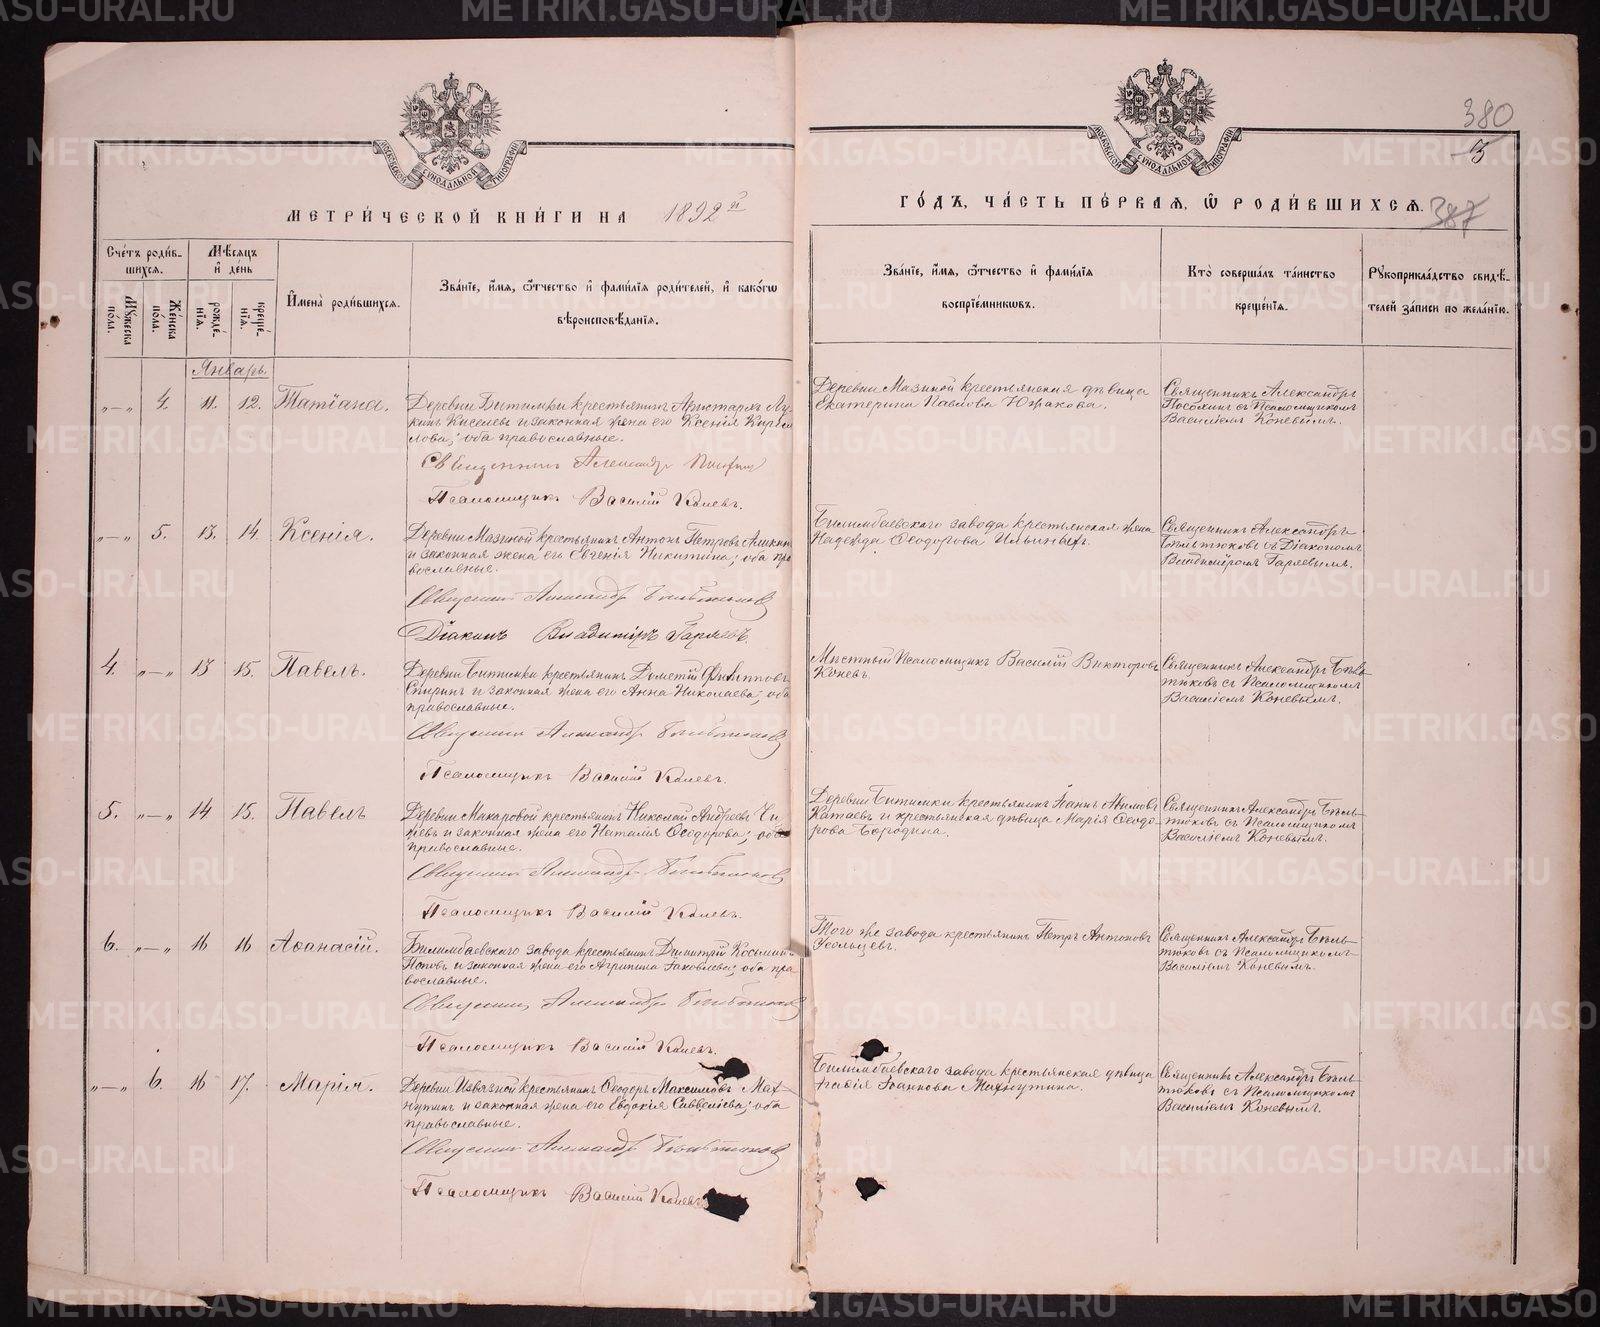 380
3
МОСКОВСКОЙ СУНОДАЛЬНОЙ ТИПОГРАФІИ
МОСКОВСКОЙ СУНОДАЛЬНОЙ ТИПОГРАФІИ
МЕТРИ́ЧЕСКОЙ КНИ́ГИ НА 1892й
ГО́ДЪ, ЧА́СТЬ ПЕ́РВАЯ, Ѿ РОДИ́ВШИХСЯ.
387
Сче́тъ роди́в-
шихся.
Му́жеска по́ла.
Же́нска по́ла.
Мѣ́сяцъ
и҆ де́нь
рожде́-
нїя.
креще́-
нїя.
И҆мена̀ роди́вшихся.
Зва́нїе, и҆́мя, ѻ҆́тчество и҆ фами́лїя роди́телей, и҆ како́гѡ
вѣроисповѣ́данїя.
Зва́нїе, и҆́мя, ѻ҆́тчество и҆ фами́лїя
воспрїе́мникѡвъ.
Кто̀ соверша́лъ та́инство
креще́нїя.
Рꙋкоприкла́дство свидѣ́-
телей за́писи по жела́нїю.
Январь.
„—„ 4. 11. 12. Татіана.
Деревни Битимки крестьянинъ Аристархъ Лу-
кинъ Киселевъ и законная жена его Ксенія Кирил
лова; оба православные.
Священникъ Александръ
Псаломщикъ Василій Коневъ.
Деревни Мазиной крестьянская дѣвица
Екатерина Павлова Южакова.
Священникъ Александръ
съ Псаломщикомъ
Василіемъ Коневымъ.
„—„ 5. 13. 14. Ксенія.
Деревни Мазиной крестьянинъ Антонъ Петровъ
и законная жена его Евгенія Никитина; оба пра
вославные.
Священникъ Александръ Бѣльтюковъ
Діаконъ Владиміръ Гаряевъ.
Билимбаевскаго завода крестьянская жена
Надежда Ѳеодорова Ильиныхъ.
Священникъ Александръ
Бѣльтюковъ съ Діакономъ
Владиміромъ Гаряевымъ.
4. „—„ 13 15. Павелъ.
Деревни Битимки крестьянинъ Дометій Филипповъ
Спиринъ и законная жена его Анна Николаева; оба
православные.
Священникъ Александръ Бѣльтюковъ
Псаломщикъ Василій Коневъ.
Мѣстный Псаломщикъ Василій Викторовъ
Коневъ.
Священникъ Александръ Бѣль-
тюковъ съ Псаломщикомъ
Василіемъ Коневымъ.
5. „—„ 14 15. Павелъ
Деревни Макаровой крестьянинъ Николай Андреевъ Чи
жевъ и законная жена его Наталія Ѳеодорова; оба
православные.
Священникъ Александръ Бѣльтюковъ
Псаломщикъ Василій Коневъ.
Деревни Битимки крестьянинъ Іоаннъ Акимовъ
Катаевъ и крестьянская дѣвица Марія Ѳеодо-
рова Бородина.
Священникъ Александръ Бѣль-
тюковъ съ Псаломщикомъ
Василіемъ Коневымъ.
6. „—„ 16 16 Аѳанасій.
Билимбаевскаго завода крестьянинъ Димитрій Косьминъ
Поповъ и законная жена его Агрипина Іаковлева; оба пра
вославные.
Священникъ Александръ Бѣльтюковъ
Псаломщикъ Василій Коневъ.
Того же завода крестьянинъ Петръ Антоновъ
Усольцевъ.
Священникъ Александръ Бѣль-
тюковъ съ Псаломщикомъ
Василіемъ Коневымъ.
„—„ 6. 16 17. Марія.
Деревни Извязной крестьянинъ Ѳеодоръ Максимовъ Мах-
нутинъ и законная жена его Евдокія Савельева; оба
православные.
Священникъ Александръ Бѣльтюковъ
Псаломщикъ Василій Коневъ
Билимбаевскаго завода крестьянская дѣвица
Іоаннова Махнутина.
Священникъ Александръ Бѣль-
тюковъ съ Псаломщикомъ
Василіемъ Коневымъ.
METRIKI.GASO-URAL.RU